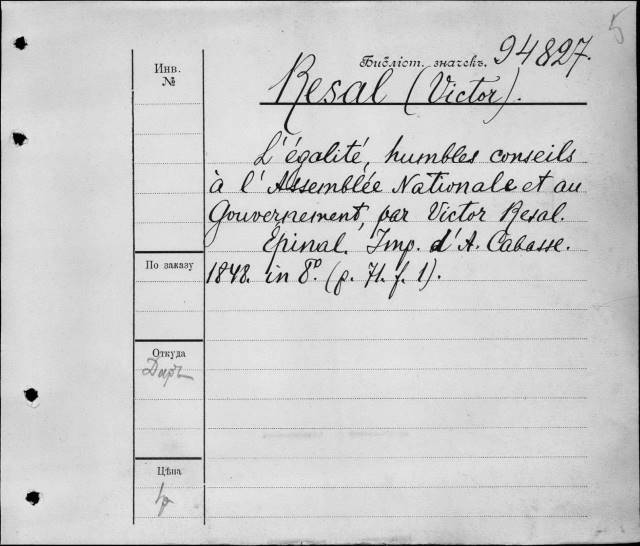 5
Библіот. значекъ. 94827.
Инв.
№
Resal (Victor).
L'égalité, humbles conseils
à l'Assemblée Nationale et au
Gouvernement, par Victor Resal.
Epinal. Imp. d'A. Cabasse.
По заказу
1848. in 8º. (p. 71. f. 1).
Откуда
Даръ
Цѣна